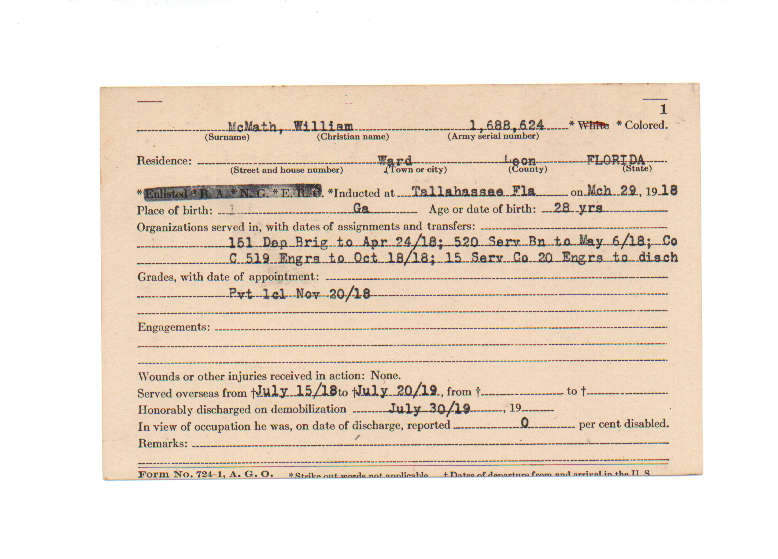 1
McMath, William 1,688,624 * White * Colored.
(Surname) (Christian name) (Army serial number)
Residence: Ward Leon FLORIDA
(Street and house number) (Town or city) (County) (State)
* Enlisted * R. A. * N. G. * E. R. C. *Inducted at Tallahassee Fla on Mch 29, 1918
Place of birth: Ga Age or date of birth: 28 yrs
Organizations served in, with dates of assignments and transfers:
151 Dep Brig to Apr 24/18; 520 Serv Bn to May 6/18; Co
C 519 Engrs to Oct 18/18; 15 Serv Co 20 Engrs to disch
Grades, with date of appointment:
Pvt 1cl Nov 20/18
Engagements:
Wounds or other injuries received in action: None.
Served overseas from †July 15/18 to †July 20/19, from † to †
Honorably discharged on demobilization July 30/19, 19
In view of occupation he was, on date of discharge, reported 0 per cent disabled.
Remarks:
Form No. 724-1, A. G. O. *Strike out words not applicable. †Dates of departure from and arrival in the U. S.